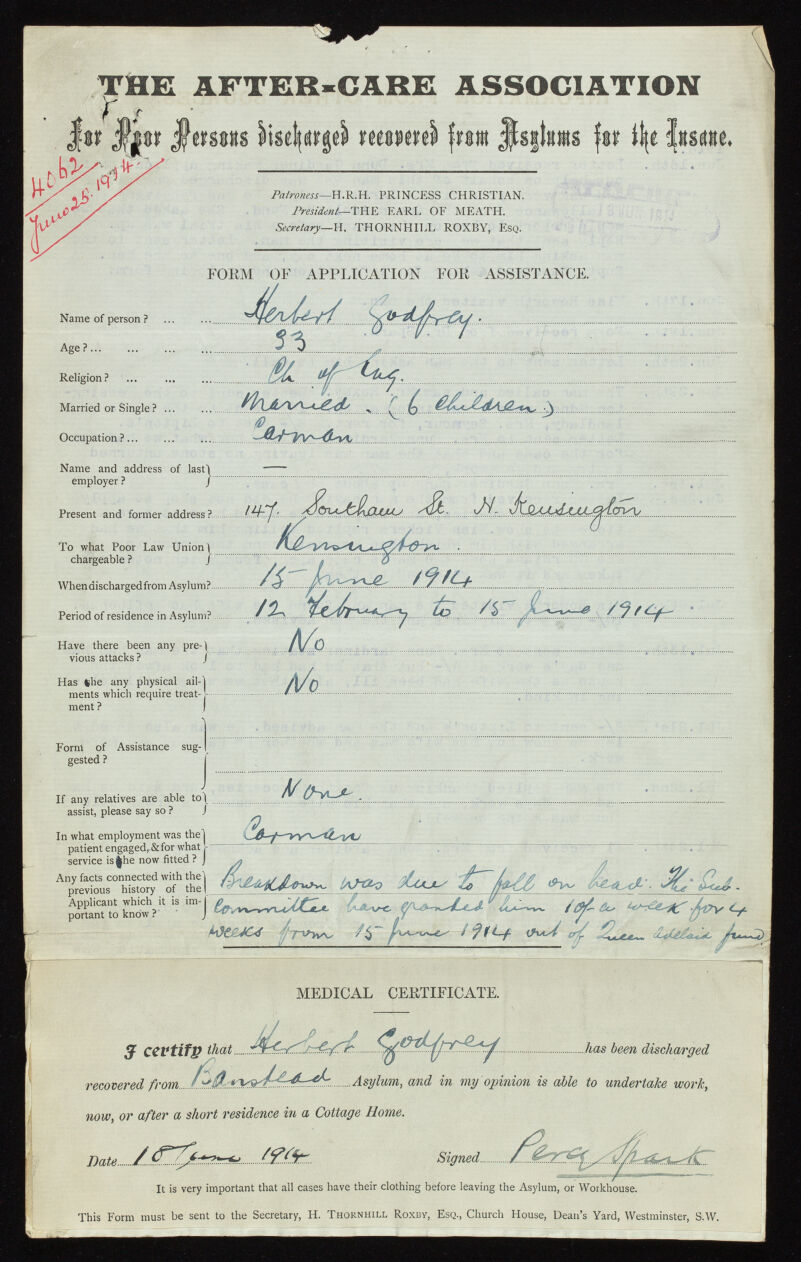 THE AFTER-CARE ASSOCIATION
For Poor Persons discharged recovered from Asylums for the Insane.
4062
June 25. 1914.
Patroness—H.R.H. PRINCESS CHRISTIAN.
President—THE EARL OF MEATH.
Secretary—H. THORNHILL ROXBY, ESQ.
FORM OF APPLICATION FOR ASSISTANCE.
Name of person? ... ... Herbert Godfrey.
Age?... ... ... ... 33
Religion? ... ... ... Ch of Eng.
Married or Single? ... ... Married. (6 Children.)
Occupation?... ... ... Carman
Name and address of last employer? —
Present and former address? 147. Southam St. N. Kensington
To what Poor Law Union chargeable? Kensington.
When discharged from Asylum? 15 June 1914
Period of residence in Asylum? 12 February to 15 June 1914.
Have there been any pre-
vious attacks? No
Has he any physical ail-
ments which require treat-
ment? No
Form of Assistance sug-
gested?
If any relatives are able to
assist, please say so? None.
In what employment was the
patient engaged, & for what
service is he now fitted? Carman
Any facts connected with the
previous history of the
Applicant which it is im-
portant to know?
Breakdown was due to fall on head. The Sub-
Committee have granted him 10/- a week for 4
weeks from 15 June 1914 out of Queen Adelaid fund
MEDICAL CERTIFICATE.
I certify that Herbert Godfrey has been discharged
recovered from Banstead Asylum, and in my opinion is able to undertake work,
now, or after a short residence in a Cottage Home.
Date 18 June 1914 Signed Percy Spark
It is very important that all cases have their clothing before leaving the Asylum, or Workhouse.
This Form must be sent to the Secretary, H. THORNHILL ROXBY, ESQ., Church House, Dean's Yard, Westminster, S.W.